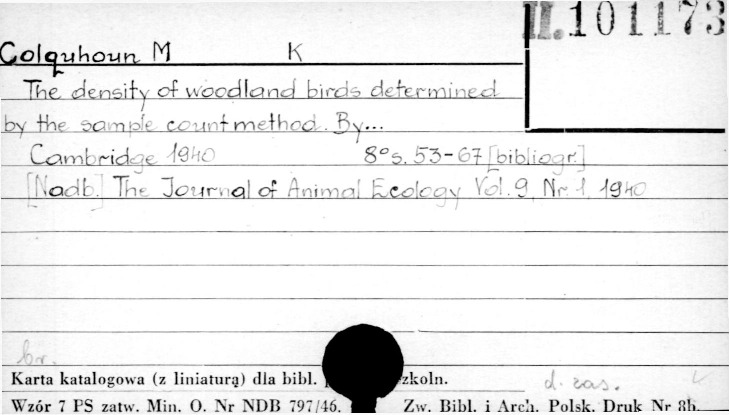 II. 101173
Colquhoun M K
The density of woodland birds determined
by the sample count method. By...
Cambridge 1940 8° s. 53-67 [bibliogr.]
[Nadb.] The Journal of Animal Ecology Vol. 9, Nr. 1, 1940
br.
Karta katalogowa (z liniaturą) dla bibl. zkoln.
d. zas.
Wzór 7 PS zatw. Min. O. Nr NDB 797/46. Zw. Bibl. i Arch. Polsk. Druk Nr 8b.